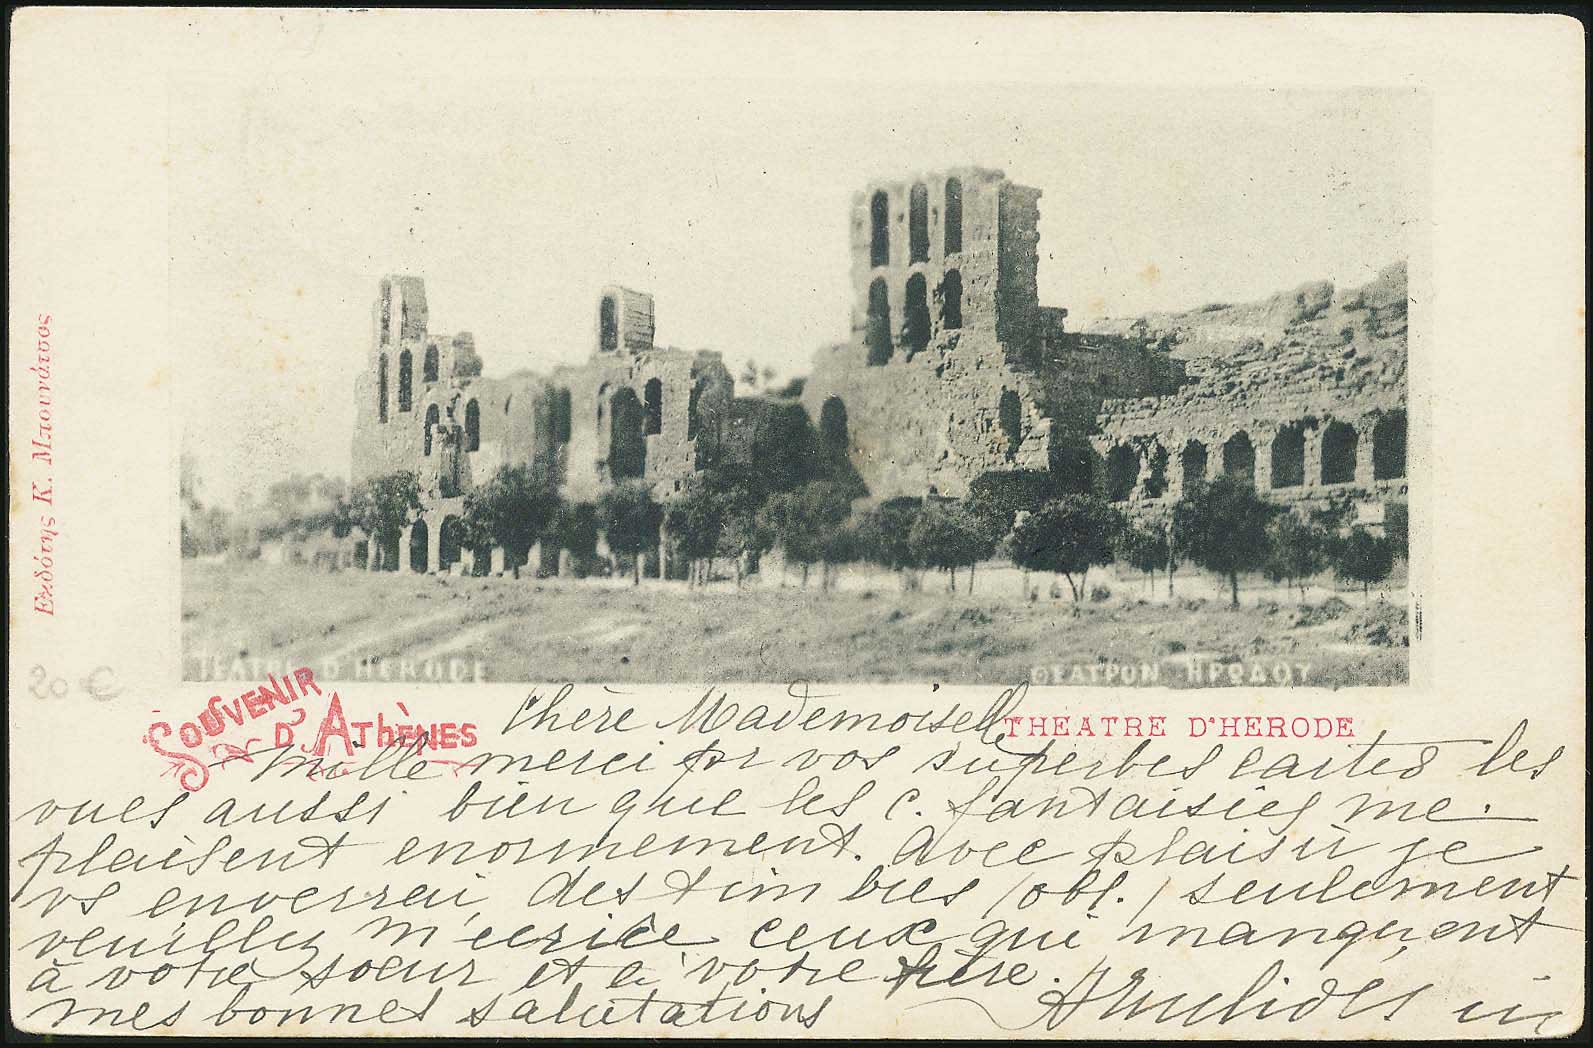 Εκδότης Κ. Μπουνάτσος
THEATRE D'HERODE
ΘΕΑΤΡΟΝ ΗΡΩΔΟΥ
20 €
SOUVENIR D'AThÈNES
THEATRE D'HERODE
Chère Mademoiselle
Mille merci pr vos superbes cartes les
vues aussi bien que les c. fantaisies me
plaisent enormement. Avec plaisir je
vs enverrai des timbres (obl.) seulement
veuillez m'ecrire ceux qui manquent
à votre soeur et à votre frère.
mes bonnes salutations